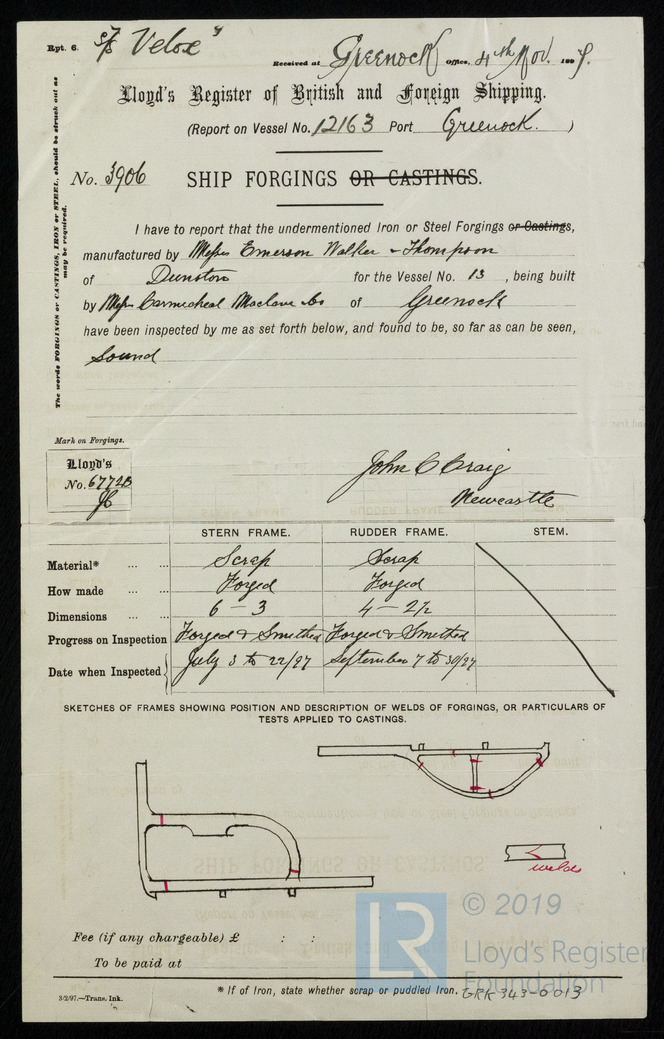 Rpt. 6.
S/S "Velox"
Received at Greenock Office, 4th Nov. 1897.
Lloyd's Register of British and Foreign Shipping.
(Report on Vessel No. 12163 Port Greenock. )
No. 3906 SHIP FORGINGS OR CASTINGS.
The words FORGINGS or CASTINGS, IRON or STEEL, should be struck out as
may be required.
I have to report that the undermentioned Iron or Steel Forgings or Castings,
manufactured by Messrs Emerson Walker & Thompson
of Dunston for the Vessel No. 13 , being built
by Messrs Carmicheal Maclean & Co of Greenock
have been inspected by me as set forth below, and found to be, so far as can be seen,
Sound
Mark on Forgings.
Lloyd's
No. 6772B
John C Craig
Newcastle
STERN FRAME. RUDDER FRAME. STEM.
Material* ... ... Scrap Scrap
How made ... ... Forged Forged
Dimensions ... ... 6 - 3 4 - 2 1/2
Progress on Inspection Forged & Smithed Forged & Smithed
Date when Inspected July 3 to 22/97 September 7 to 30/97
SKETCHES OF FRAMES SHOWING POSITION AND DESCRIPTION OF WELDS OF FORGINGS, OR PARTICULARS OF
TESTS APPLIED TO CASTINGS.
welds
Fee (if any chargeable) £ : :
To be paid at
* If of Iron, state whether scrap or puddled Iron.
GRK 343-0013
3/2/97.—Trans. Ink.
LR
© 2019
Lloyd's Register
Foundation